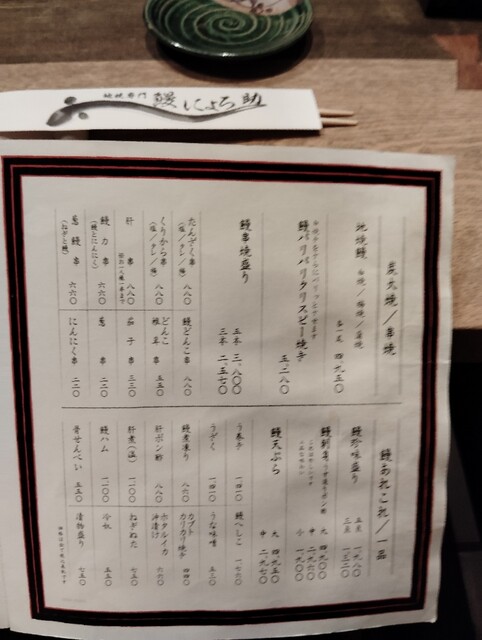 地焼専門 鰻 にょろ助
炭火焼／串焼
地焼鰻 白焼／塩焼／蒲焼
各一尾 四、九五〇
鰻パリパリクリスピー焼き
五、二八〇
鰻串焼盛り
五本 三、八〇〇
三本 二、五七〇
たんざく串
（塩／タレ／味）
八八〇
くりから串
（塩／タレ／味）
八八〇
肝串
八八〇
鰻力串
（鰻とにんにく）
六六〇
葱鰻串
（ねぎと鰻）
六六〇
鰻どんこ串 八八〇
どんこ椎茸串 五五〇
茄子串 三三〇
葱串 二二〇
にんにく串 二二〇
鰻あれこれ／一品
鰻珍味盛り
五点 一、九八〇
三点 一、三二〇
大 四、九五〇
中 二、九七〇
小 一、九〇〇
鰻天ぷら
大 四、九五〇
中 二、九七〇
う巻き 一四二〇
うざく 一四二〇
鰻煮凍り 八六〇
肝ポン酢 八八〇
肝煮（温） 一一〇〇
鰻ハム 一一〇〇
骨せんべい 五五〇
鰻へしこ 一七六〇
うな味噌 五三〇
カブト
カリカリ焼き 四四〇
ホタルイカ
沖漬け 六六〇
ねぎぬた 七五〇
冷奴 五五〇
漬物盛り 七五〇